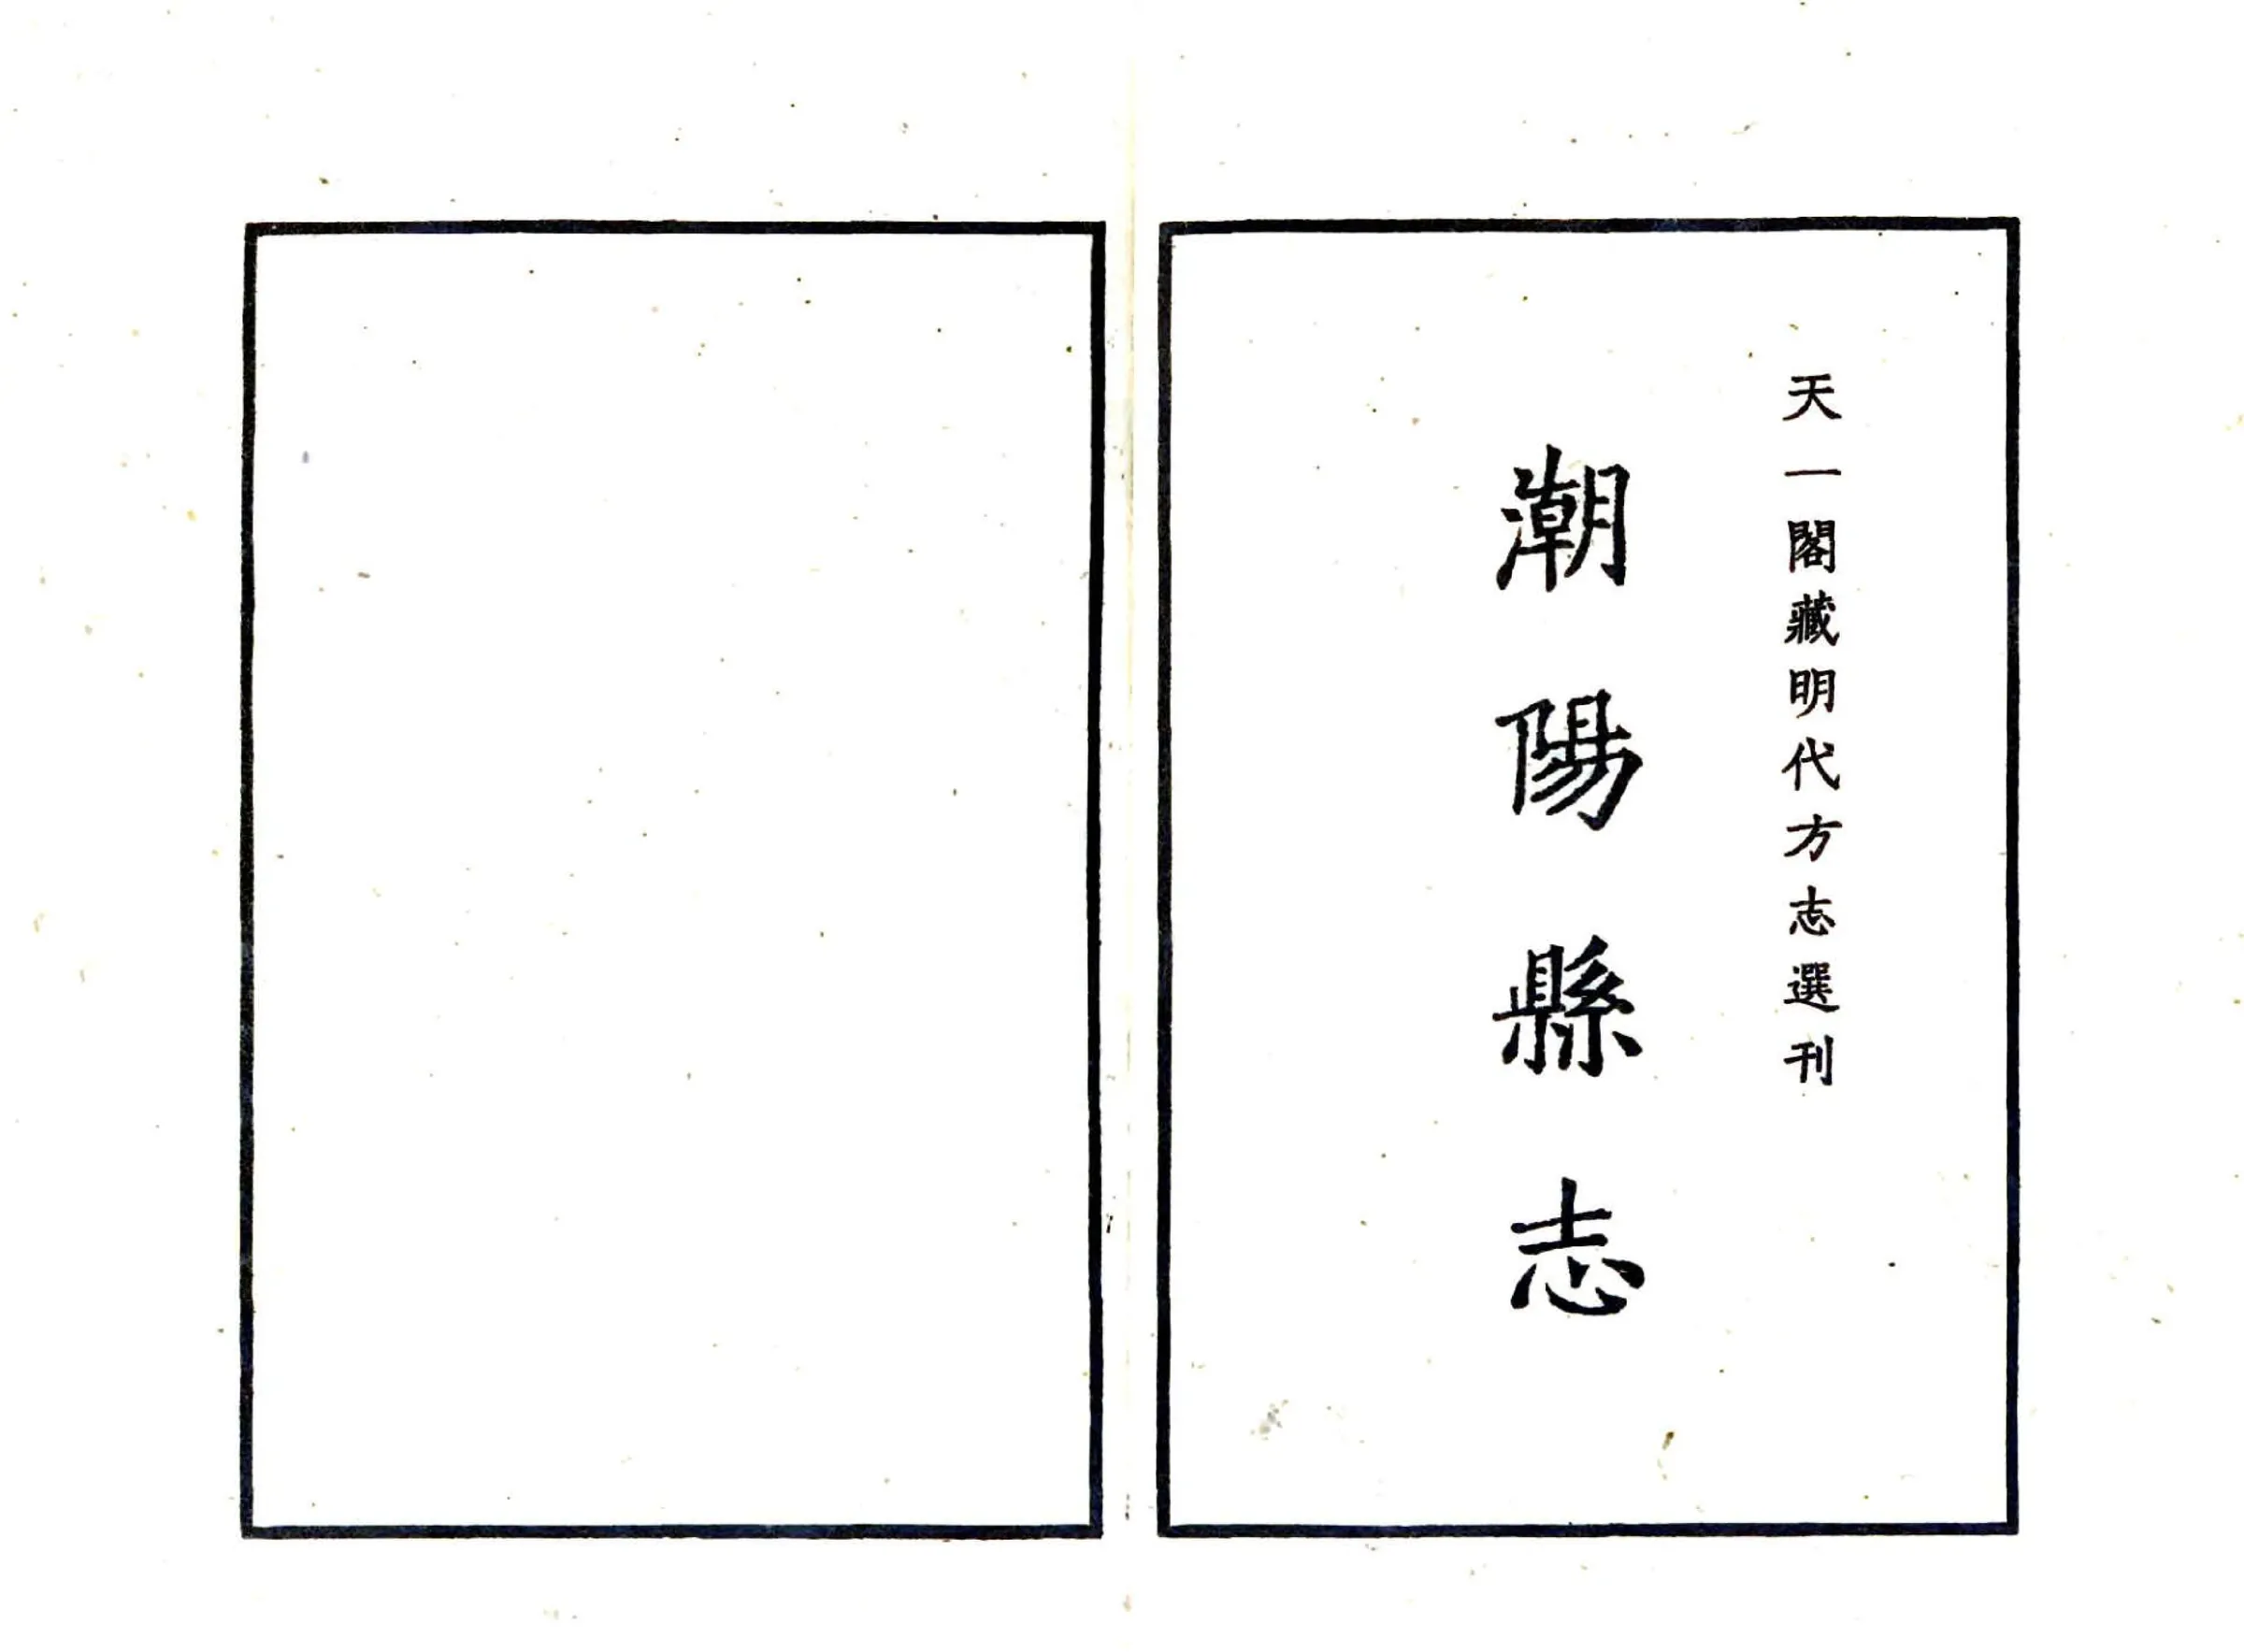 天一閣藏明代方志選刊
潮陽縣志